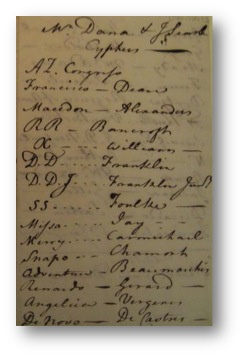 Mr. Dana & J. Searle
Cyphers
AZ. Congress
Francisco - Deane
Macedon - Alexanders
RR - Bancroft
X - Williams -
D.D. Franklin
D.D.J Franklin Junr.
SS Foulke -
Messa Jay -
Merry Carmichael
Snapo - Chamont
Adventure - Beaumarchis
Renardo - Gerard -
Angelica - Vergenes
De Novo - De Castres -